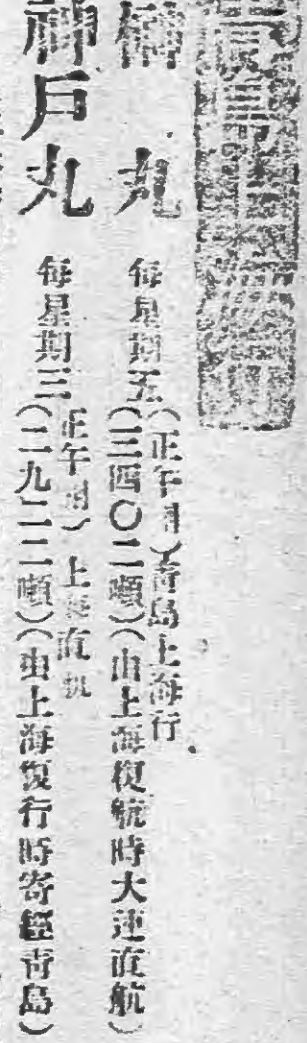 榊丸
每星期五(正午開)靑島上海行
(三四〇二噸)(由上海復航時大連直航)
神戶丸
每星期三(正午開)上海直航
(二九二二噸)(由上海復行時寄經靑島)